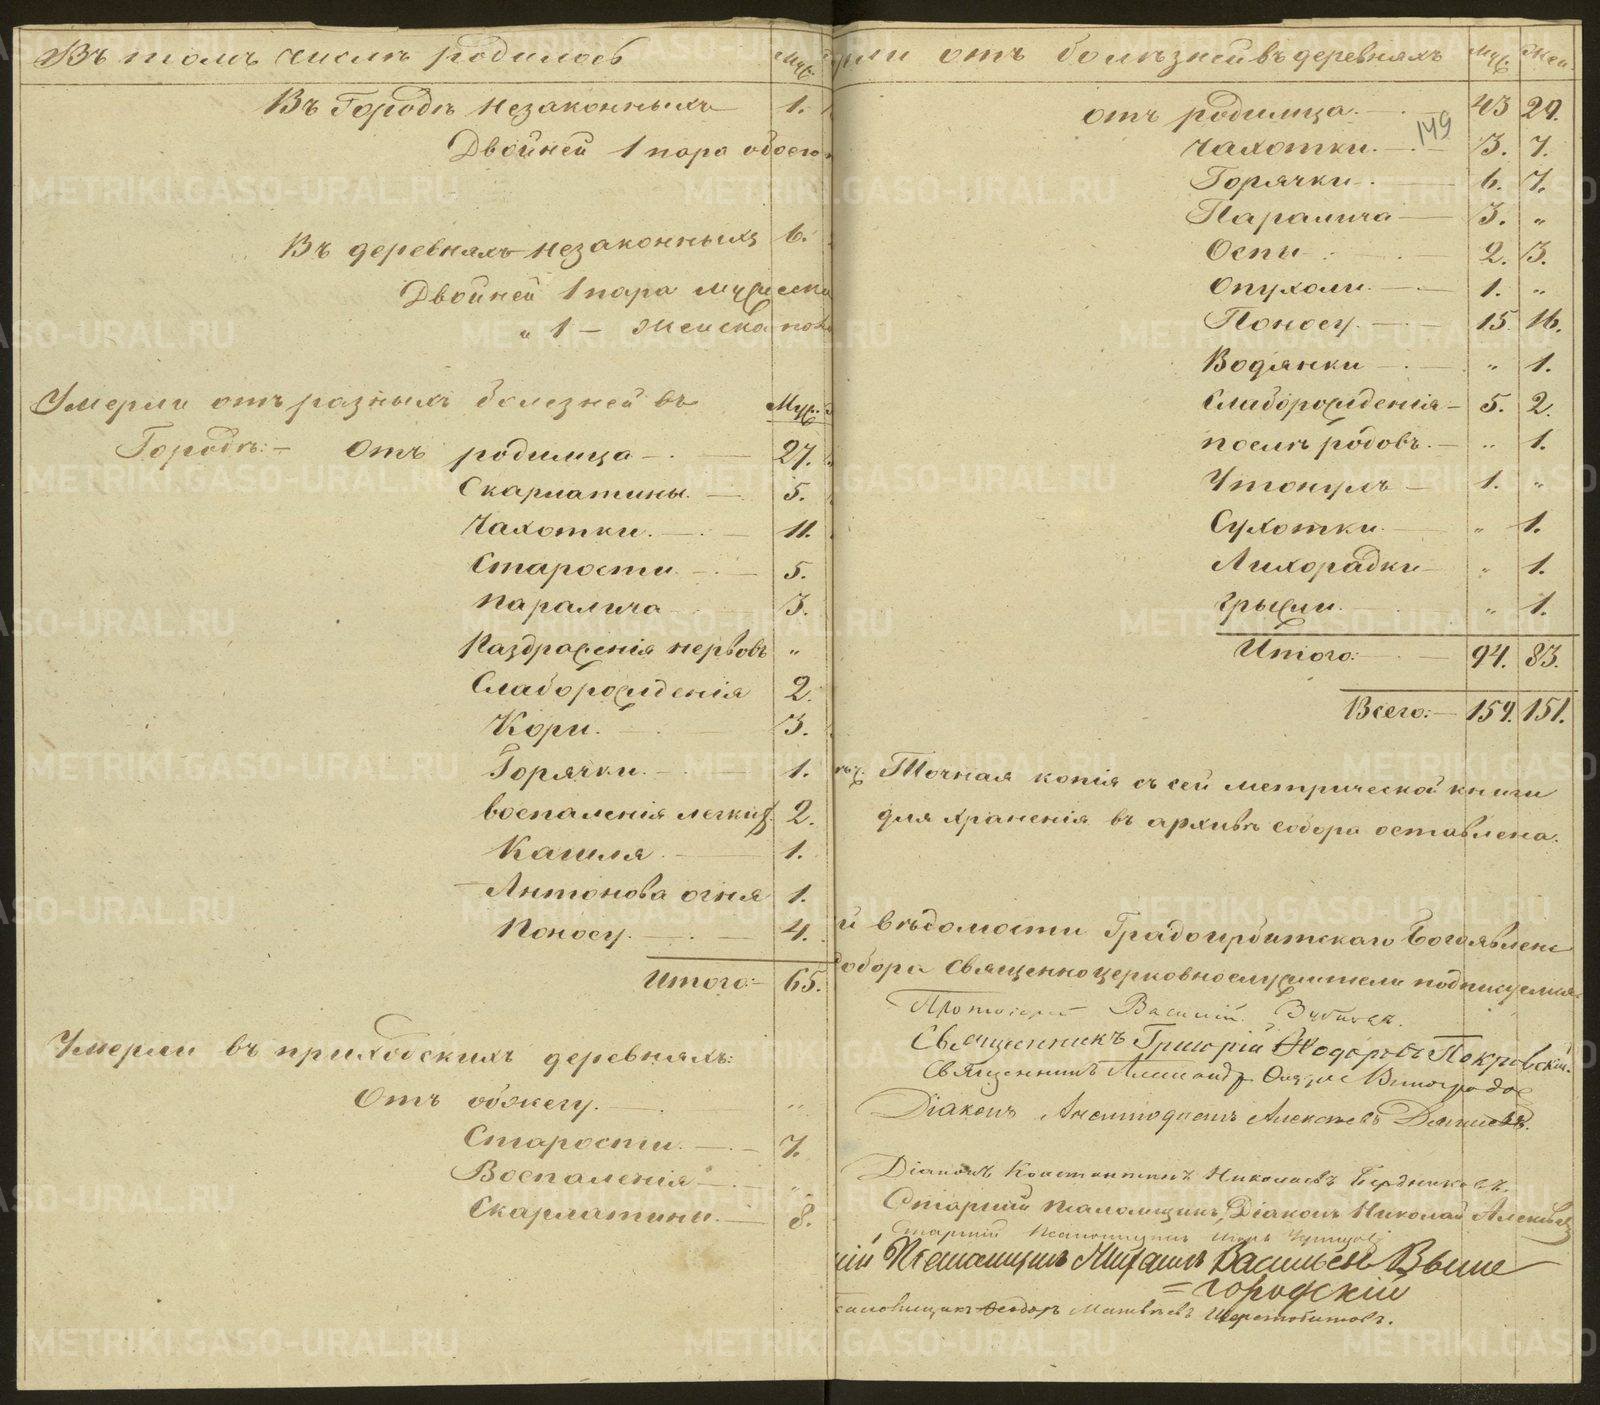 Въ томъ числѣ родилось Муж.
Въ Городѣ незаконныхъ 1.
Двойней 1 пара обоего
Въ деревняхъ незаконныхъ 6.
Двойней 1 пара мужеска
„ 1 — женска пола
Умерли отъ разныхъ болезней въ Муж.
Городѣ: — Отъ родимца — 27.
Скарлатины — 5.
Чахотки. — 11.
Старости — 5.
Паралича 3.
Раздраженія нервовъ „
Слаборожденія 2.
Кори. — 3.
Горячки — 1.
воспаленія легкихъ 2.
Кашля — 1.
Антонова огня 1.
Поносу. — 4.
Итого: — 65.
Умерли въ приходскихъ деревняхъ:
Отъ обжегу. — „
Старости. — 7.
Воспаленія — „
Скарлатины. — 8.
отъ болѣзней въ деревняхъ Муж. Жен.
отъ родимца. — 43 29.
149
Чахотки. — 3. 7.
Горячки — 6. 7.
Паралича — 3. „
Оспы — 2. 3.
Опухоли. — 1. „
Поносу. — 15. 16.
Водянки — „ 1.
Слаборожденія — 5. 2.
послѣ родовъ. — „ 1.
Утонулъ — 1. „
Сухотки. — „ 1.
Лихорадки — „ 1.
грыжи. „ 1.
Итого: — 94. 83.
Всего: — 159. 151.
Точная копія съ сей метрической книги
для храненія въ архивѣ собора оставлена.
й вѣдомости Градоирбитскаго Богоявленс
собора священноцерковнослужители подписуемся
Протоіерей Василій
Священникъ Григорій Ѳодоровъ Покровскій.
Священникъ Александръ Виноградов
Діаконъ Алексѣевъ
Діаконъ Константинъ Николаевъ Бердниковъ.
Старшій псаломщикъ, Діаконъ Николай Алексѣев
Старшій Псаломщикъ
ій Псаломщикъ Михаилъ Васильевъ Выше
= городскій
саломщикъ Ѳеодоръ Матвѣевъ Шерстобитовъ.
METRIKI.GASO-URAL.RU